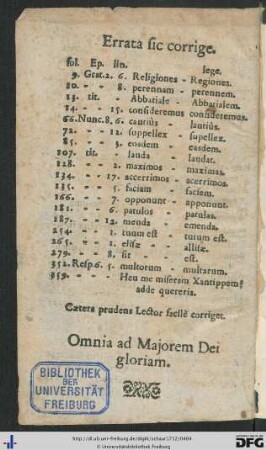 Errata sic corrige.
fol. Ep. lin. lege.
9. Grat. 2. 6. Religiones - Regiones.
10. - - 8. perennam - perennem.
13. tit. - Abbatiale - Abbatialem.
14. - - 15. consideremus consideremus.
66. Nunc. 8. 6. cautius - lautius.
72. - - 12. suppellex - supellex.
85. - - 3. eosdem - easdem.
107. tit. - lauda - laudat.
128. - - 2. maximos - maximas.
134. - - 17. accerrimos - acerrimos.
135. - - 5. faciam - faciem.
166. - - 7. opponunt - apponunt.
181. - - 6. patulos - patulas.
187. - - 12. menda - emenda.
254. - - 1. tuum est - tutum est.
265. - - 1. elisæ - allisæ.
279. - - 8. sit - est.
352. Resp. 6. 5. multorum - multarum.
359. - - - Heu me miserам Xantippem!
adde quereris.
Cætera prudens Lector facilè corriget.
Omnia ad Majorem Dei
gloriam.
BIBLIOTHEK
DER
UNIVERSITÄT
FREIBURG
http://dl.ub.uni-freiburg.de/diglit/schaur1712/0404
© Universitätsbibliothek Freiburg
Gefördert durch
DFG